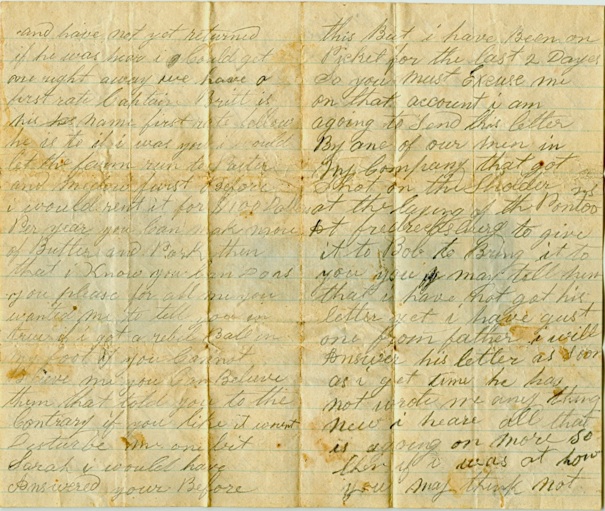 and have not yet returned
if he was here i Could get
one right away we have a
first rate Captain Britt is
his name first rate fellow
he is to if i was you i would
let the farm run to
and first Before
i would rent it for $100
Per year you Can make more
of Butter and Pork then
that i Know you Can do as
you please for all me you
wanted me to tell you in
i got a rebel Ball in
my foot if you Cannot
Believe me you Can Believe
them that told you to the
Contrary if you like it wont
Disturbe me one bit
Sarah i would have
Answered your Before
this But i have Been on
Picket for the last 2 Days
So you must Excuse me
on that account i am
agoing to Send this letter
By one of our men in
my Company that got
Shot on the Sholder
at the laying of the Pontoo ns
At fredricksburg to give
it to Bob to Bring it to
you you may tell him
that i have not got his
letter yet i have gust
one from father i will
Answer his letter as Soon
as i get time he has
not wrote me any thing
new i hear all that
is agoing on more so
then if i was at home
you may think not